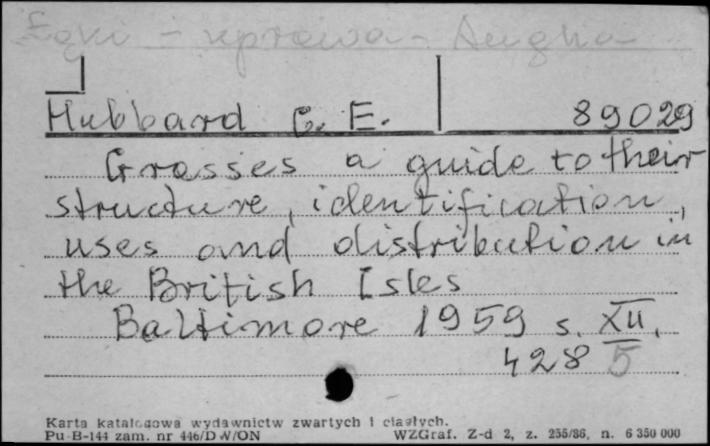 Łąki - uprawa - Anglia
Hubbard C. E. 89029
Grasses a guide to their
structure, identification,
uses and distribution in
the British Isles
Baltimore 1959 s. XII,
428 5
Karta katalogowa wydawnictw zwartych i ciągłych.
Pu-B-144 zam. nr 446/DW/ON WZGraf. Z-d 2, z. 255/86, n. 6 350 000